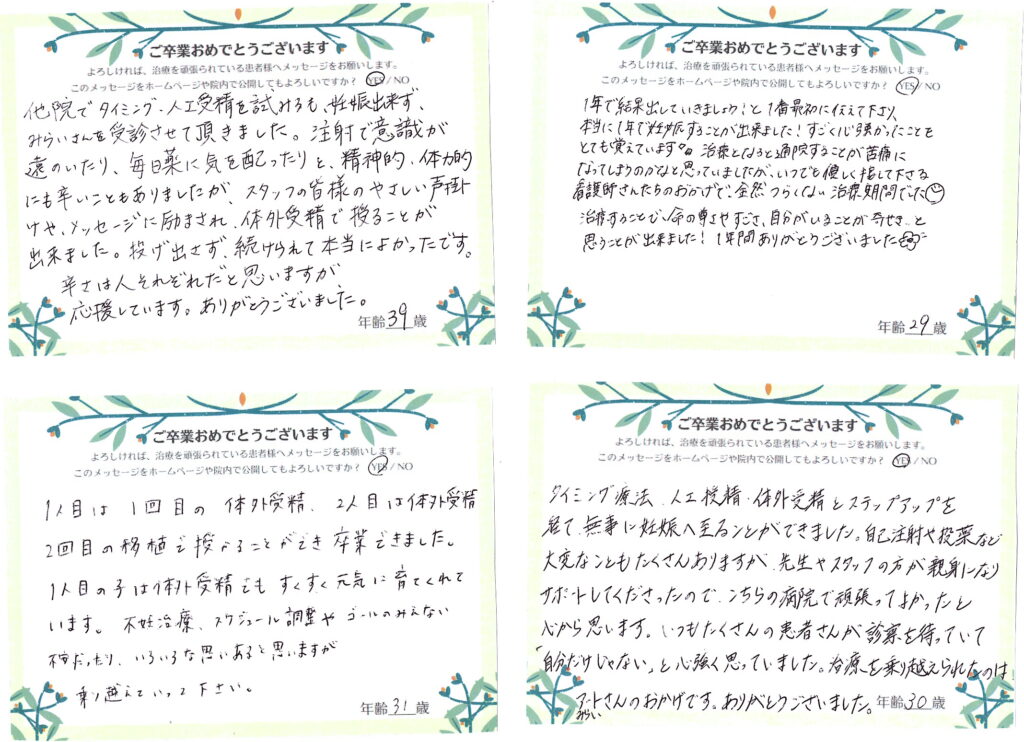 ご卒業おめでとうございます
よろしければ、治療を頑張られている患者様へメッセージをお願いします。
このメッセージをホームページや院内で公開してもよろしいですか？ YES / NO
他院でタイミング、人工受精を試みるも、妊娠出来ず、
みらいさんを受診させて頂きました。注射で意識が
遠のいたり、毎日薬に気を配ったりと、精神的、体力的
にも辛いこともありましたが、スタッフの皆様のやさしい声掛
けや、メッセージに励まされ、体外受精で授ることが
出来ました。投げ出さず、続けられて本当によかったです。
辛さは人それぞれだと思いますが
応援しています。ありがとうございました。
年齢 39 歳
ご卒業おめでとうございます
よろしければ、治療を頑張られている患者様へメッセージをお願いします。
このメッセージをホームページや院内で公開してもよろしいですか？ YES / NO
1年で結果出していきましょう！と1番最初に伝えて下さり、
本当に1年で妊娠することが出来ました！すごく心強かったことを
とても覚えています 治療となると通院することが苦痛に
なってしまうのかなと思っていましたが、いつでも優しく接して下さる
看護師さんたちのおかげで、全然つらくない治療期間でした
治療することで、命の尊さやすごさ、自分がいることが奇せき、と
思うことが出来ました！1年間ありがとうございました
年齢 29 歳
ご卒業おめでとうございます
よろしければ、治療を頑張られている患者様へメッセージをお願いします。
このメッセージをホームページや院内で公開してもよろしいですか？ YES / NO
1人目は 1回目の 体外受精、2人目は体外受精
2回目の移植で授かることができ 卒業できました。
1人目の子は体外受精でも すくすく元気に育てくれて
います。 不妊治療、スケジュール調整や ゴールのみえない
不安だったり、いろいろな思いあると思いますが
乗り越えていって下さい。
年齢 31 歳
ご卒業おめでとうございます
よろしければ、治療を頑張られている患者様へメッセージをお願いします。
このメッセージをホームページや院内で公開してもよろしいですか？ YES / NO
タイミング療法、人工授精、体外受精とステップアップを
経て、無事に妊娠へ至ることができました。自己注射や投薬など
大変なこともたくさんありますが、先生やスタッフの方が親身になり
サポートしてくださったので、こちらの病院で頑張ってよかったと
心から思います。いつもたくさんの患者さんが診察を待っていて
「自分だけじゃない」と心強く思っていました。治療を乗り越えられたのは
アートさんのおかげです。ありがとうございました。
みらい
年齢 30 歳